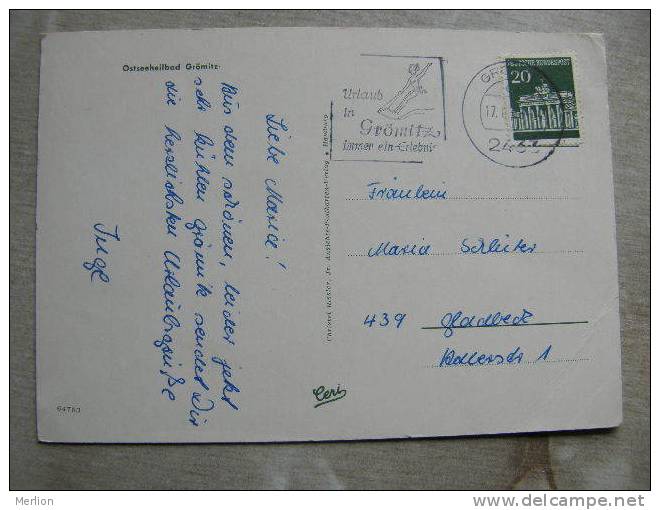 Ostseeheilbad Grömitz
Liebe Maria!
Aus dem schönen, leider jetzt
sehr kühlen Grömitz sendet Dir
die herzlichsten Urlaubsgrüße
Inge
64783
Ceri
Urlaub
in
Grömitz
immer ein Erlebnis
17.
DEUTSCHE BUNDESPOST
20
Fräulein
Maria Schlüter
439 Gladbeck
Merlion
www.delcampe.net